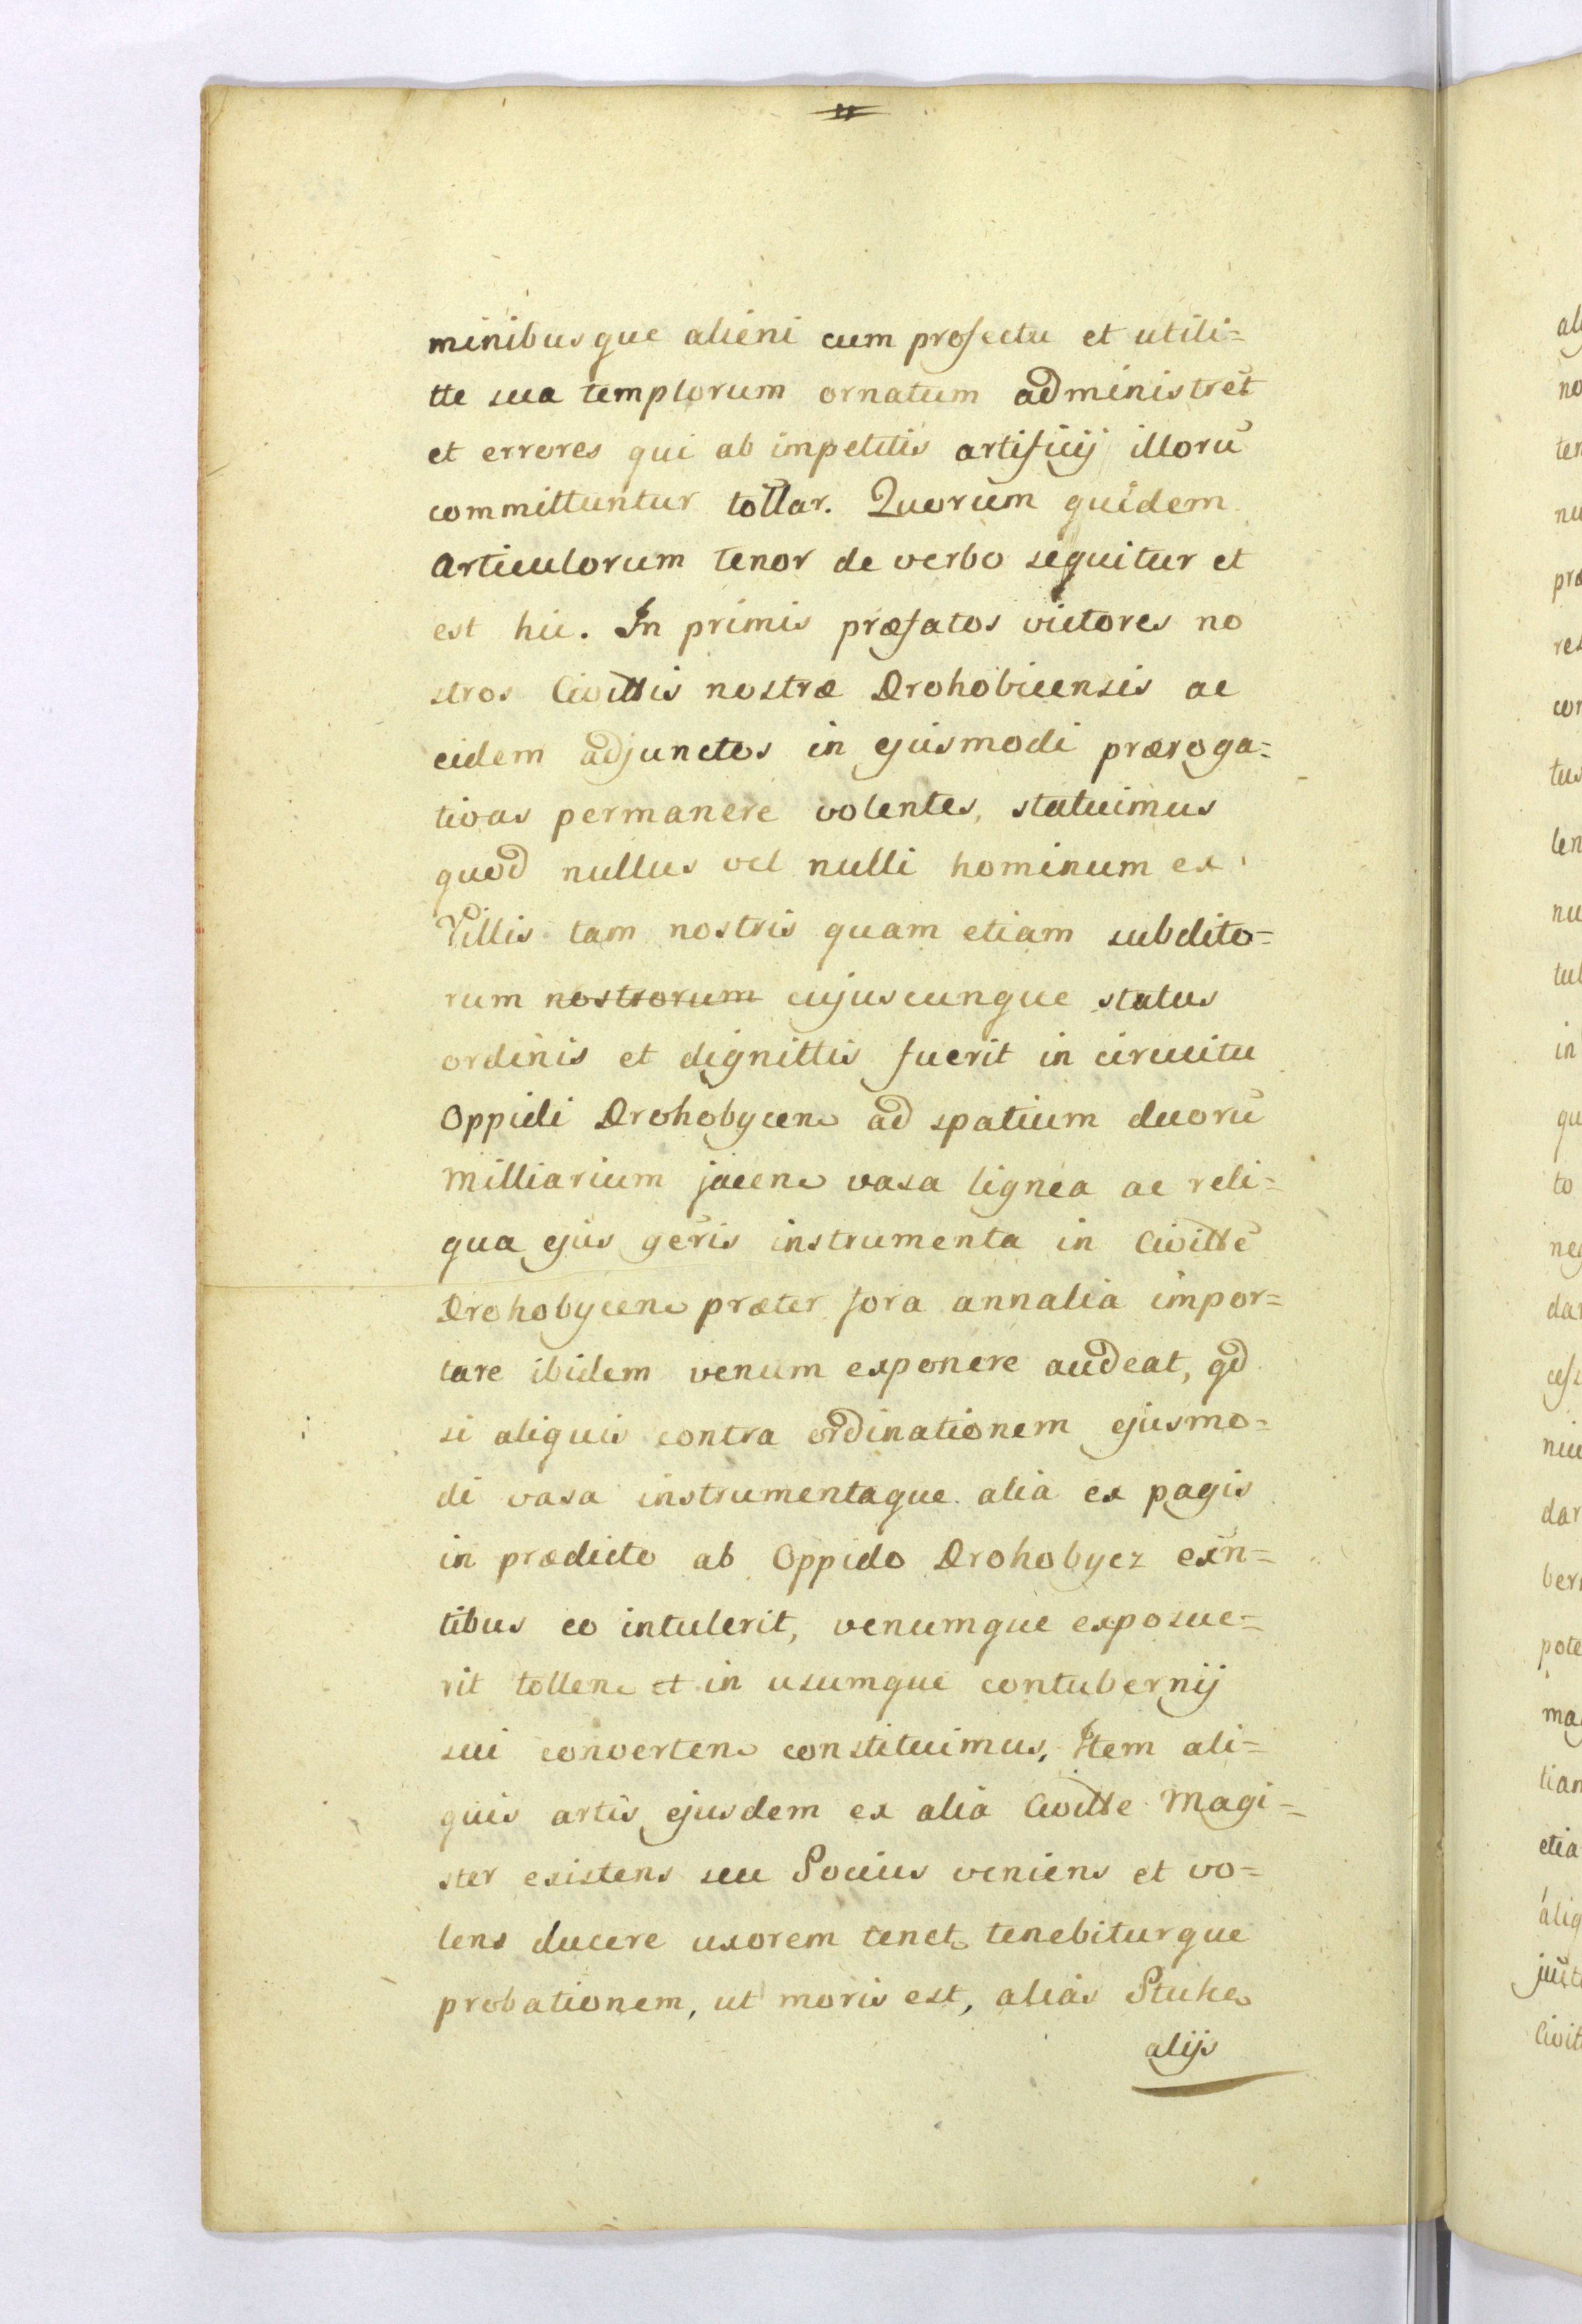 minibusque alieni cum profectu et utili=
tte sua templorum ornatum administret
et errores qui ab impetitis artificij illorū
committuntur tollar. Quorum quidem
Articulorum tenor de verbo sequitur et
est hic. In primis præfatos victores no
stros Civittis nostræ Drohobicensis ac
eidem adjunctos in ejusmodi præroga=
tivas permanere volentes, statuimus
quod nullus vel nulli hominum ex
Villis tam nostris quam etiam subdito=
rum nostrorum cujuscunque status
ordinis et dignittis fuerit in circuitu
Oppidi Drohobycen. ad spatium duorū
Milliarium jacen. vasa lignea ac reli=
qua ejus gēris instrumenta in Civitte
Drohobycen. præter fora annalia impor=
tare ibidem venum exponere audeat, qd
si aliquis contra ordinationem ejusmo=
di vasa instrumentaque alia ex pagis
in prædicto ab Oppido Drohobycz exn̄=
tibus eo intulerit, venumque exposue=
rit tollen. et in usumque contubernij
sui converten. constituimus, Item ali=
quis artis ejusdem ex alia Civitte Magi=
ster existens seu Socius veniens et vo=
lens ducere uxorem tenet. tenebiturque
probationem, ut moris est, alias Stuke
alijs